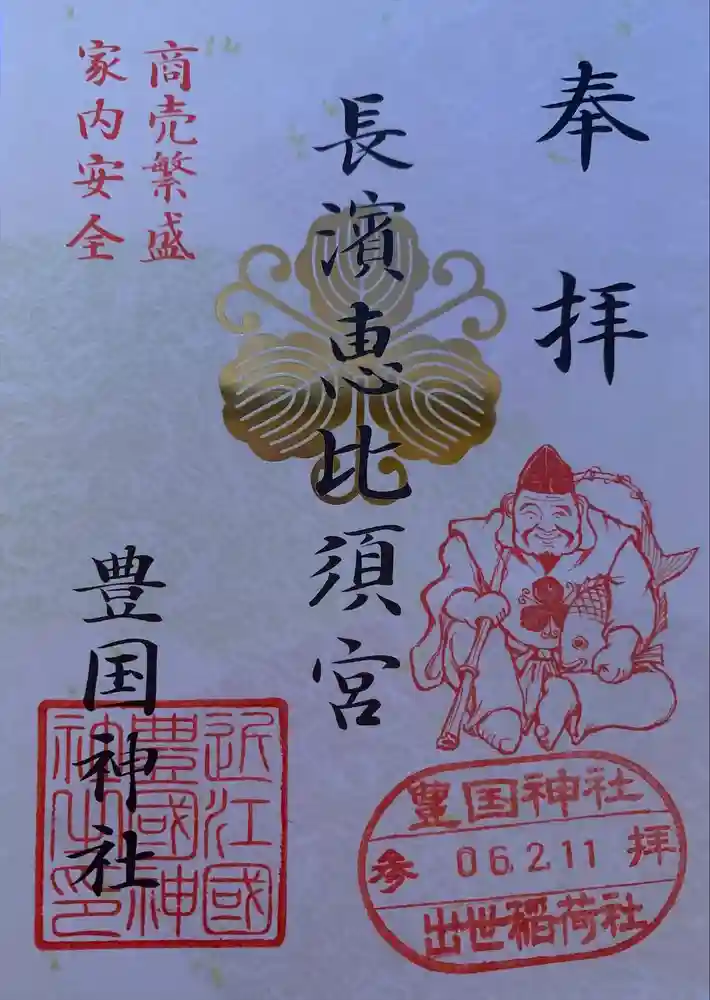 奉拝
長濱恵比須宮
商売繁盛
家内安全
豊国神社
近江國
豊國神
社之印
豊国神社
参拝
06.2.11
出世稲荷社